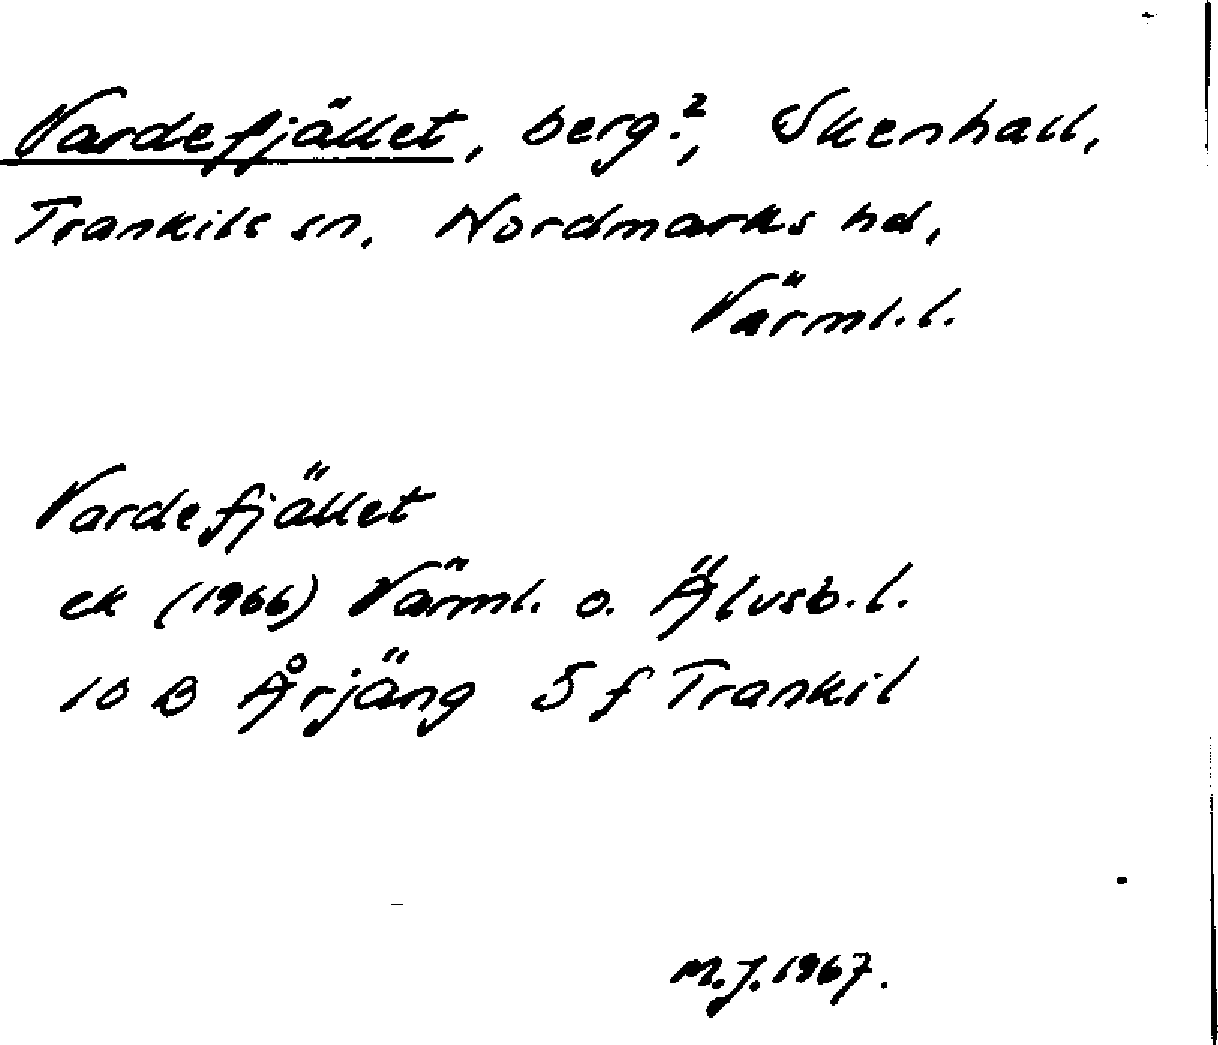 Vardefjället, berg?, Skenhall,
Trankils sn, Nordmarks hd,
Värml.l.
Vardefjället
ek (1966) Värml. o. Älvsb.l.
10 B Årjäng 5 f Trankil
M.J. 1967.